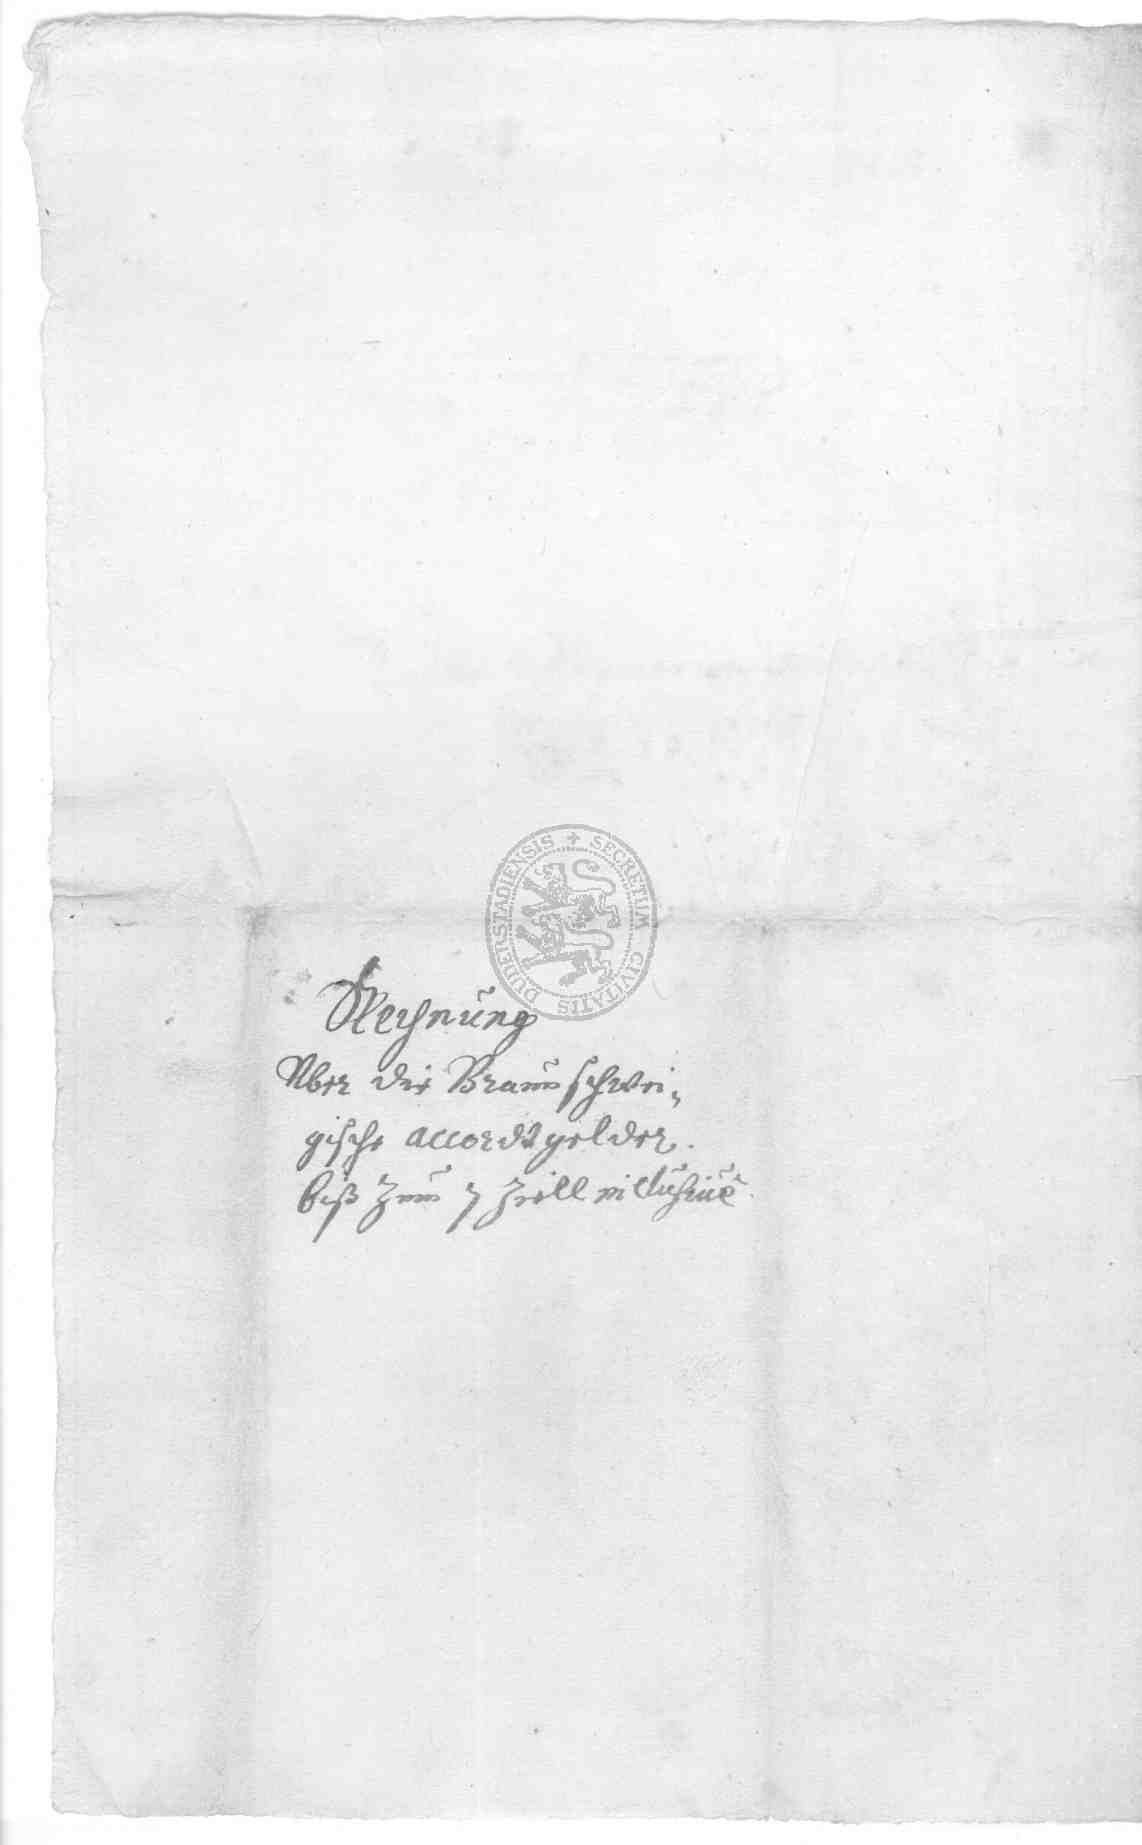 DUDERSTADIENSIS + SECRETUM CIVITATIS
Rechnung
Uber die Braunschwei„
gische accordtgelder.
biß zum 7 Ziell inclusiué.